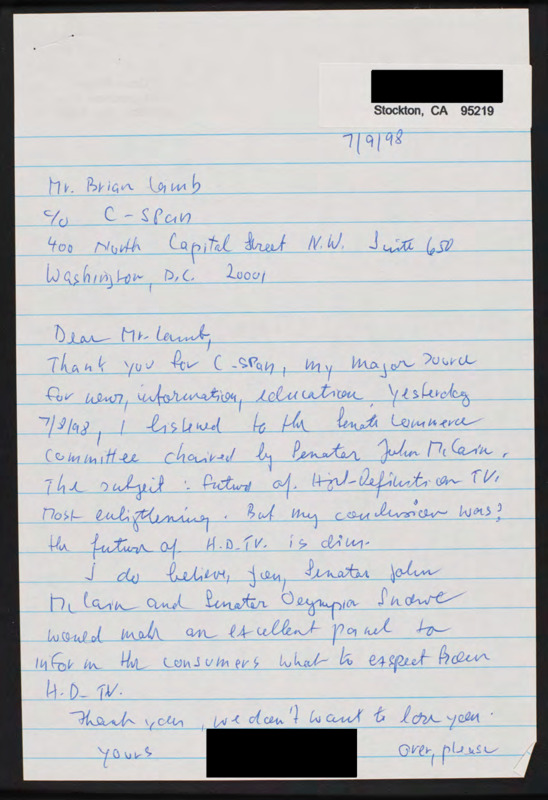 Stockton, CA 95219
7/9/98
Mr. Brian Lamb
c/o C-SPan
400 North Capital Street N.W. Suite 650
Washington, D.C. 20001
Dear Mr. Lamb,
Thank you for C-SPan, my major source
for news, information, education. Yesterday
7/8/98, I listened to the Senate Commerce
Committee chaired by Senator John McCain.
The subject: future of High-Definition TV.
Most enligthening. But my conclusion was:
the future of H.D.TV. is dim.
I do believe, you, Senator John
McCain and Senator Olympia Snowe
would make an excellent panel to
inform the consumers what to expect from
H.D-TV.
Thank you, we don't want to lose you.
yours
over, please